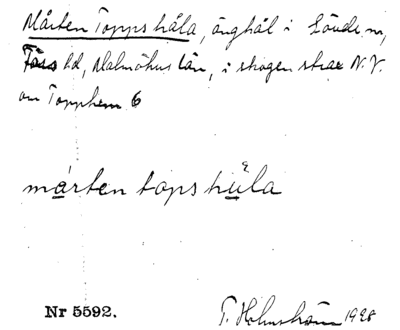 Mårten Topps håla, änghål i Lövde sn,
Färs hd, Malmöhus län, i skogen strax N.V.
om Topphem 6
mårten tops hůla
Nr 5592.
T. Holmström 1928